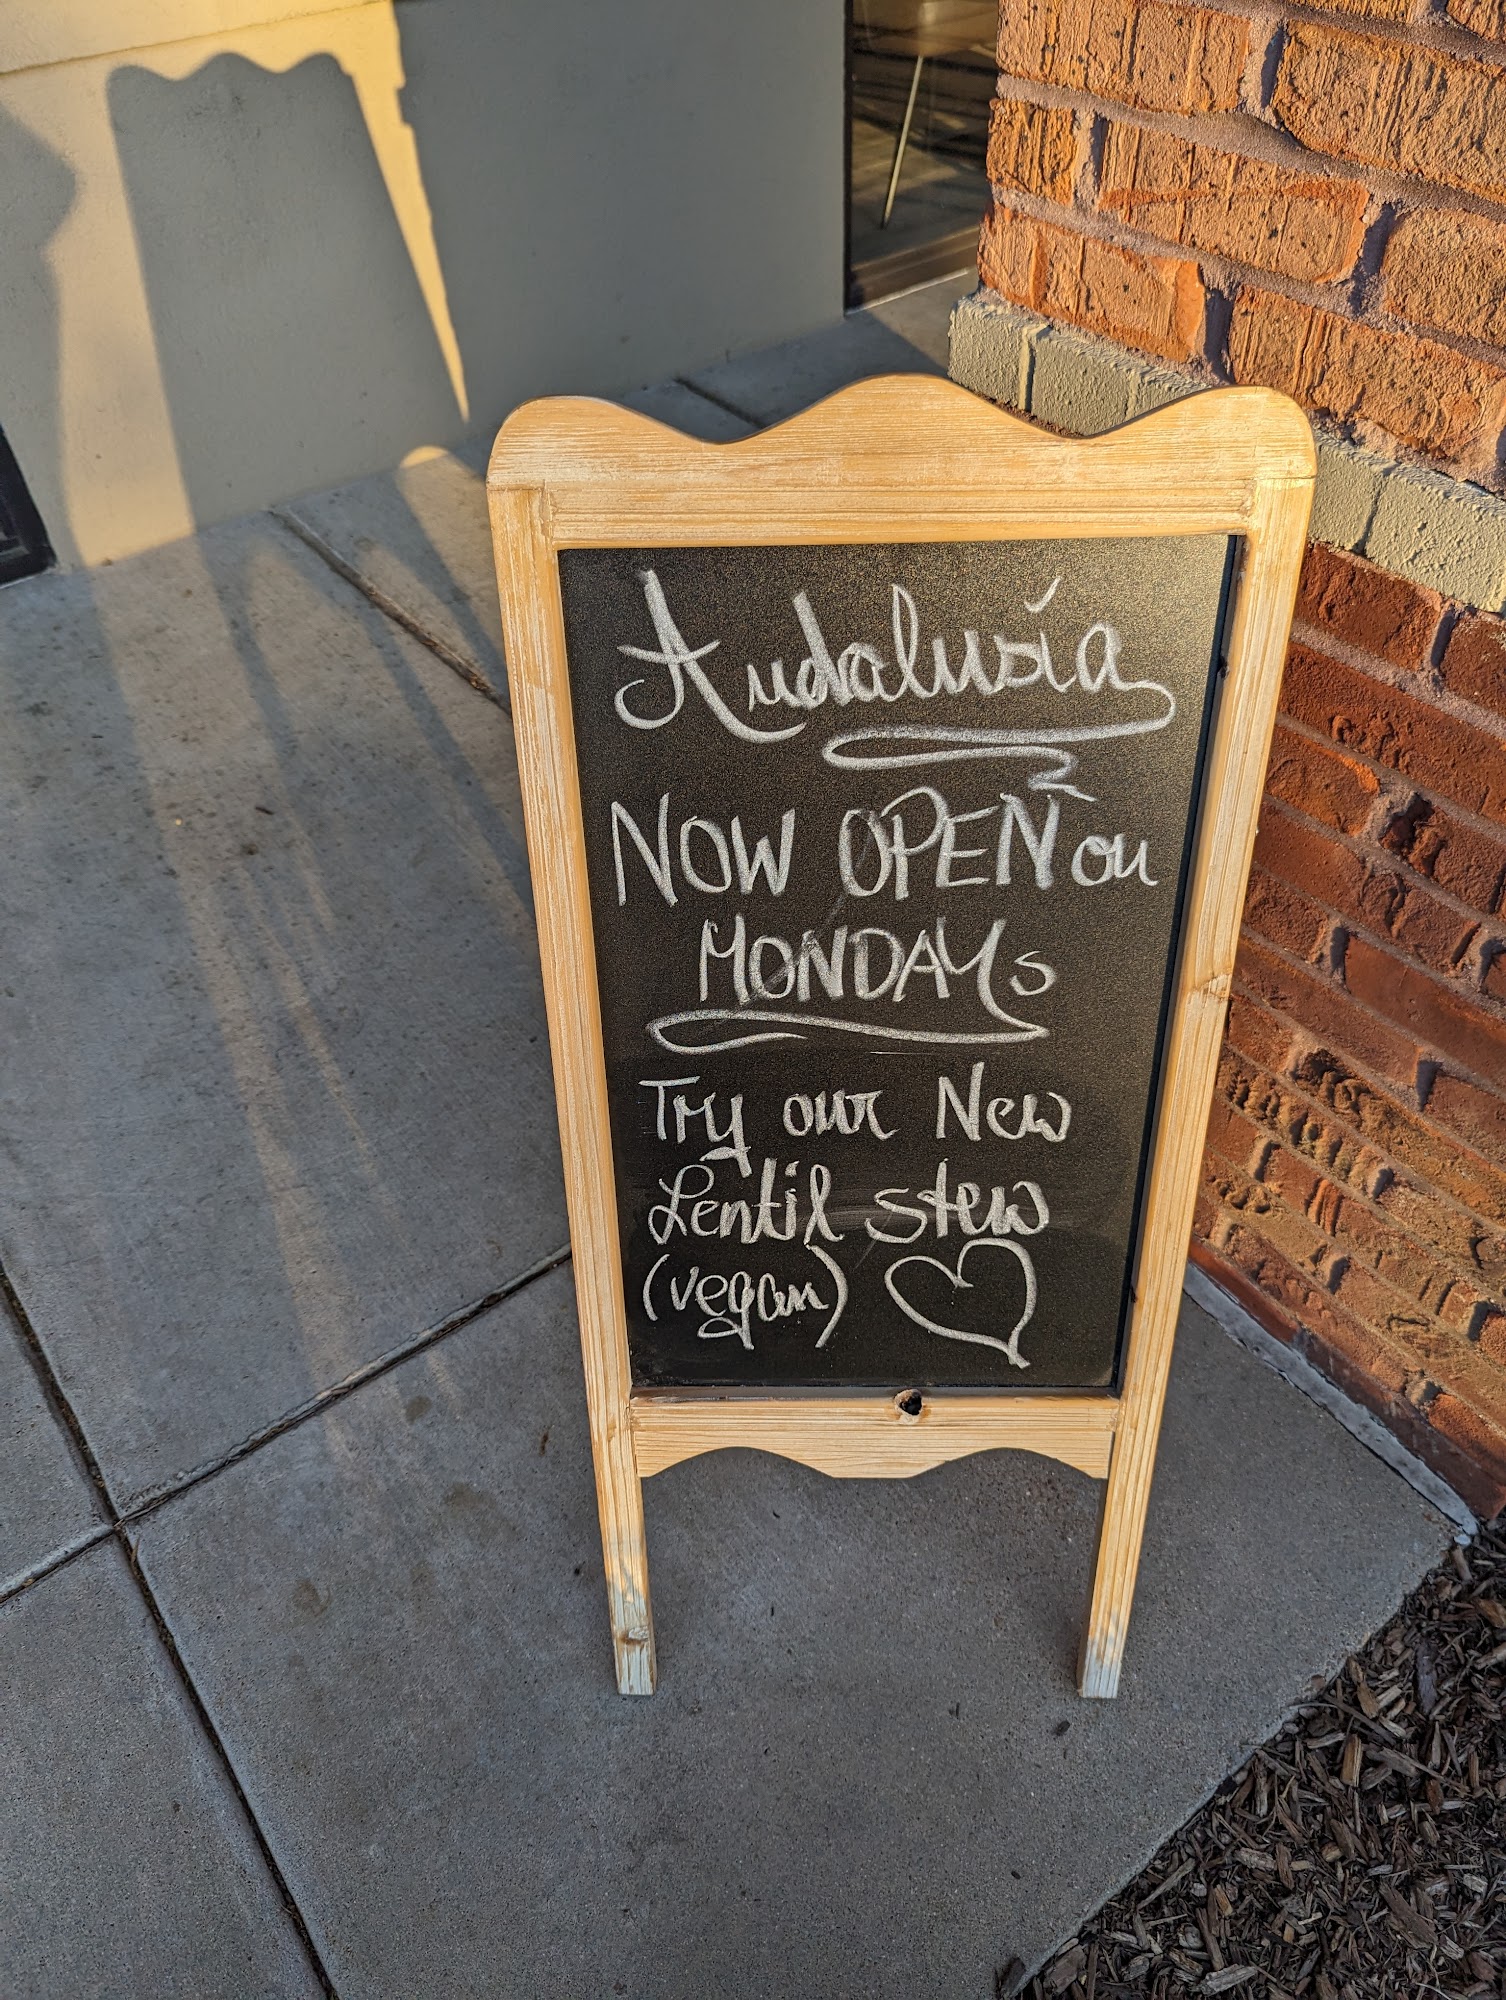 Andalusía
NOW OPEN on
MONDAYs
Try our New
Lentil stew
(vegan)